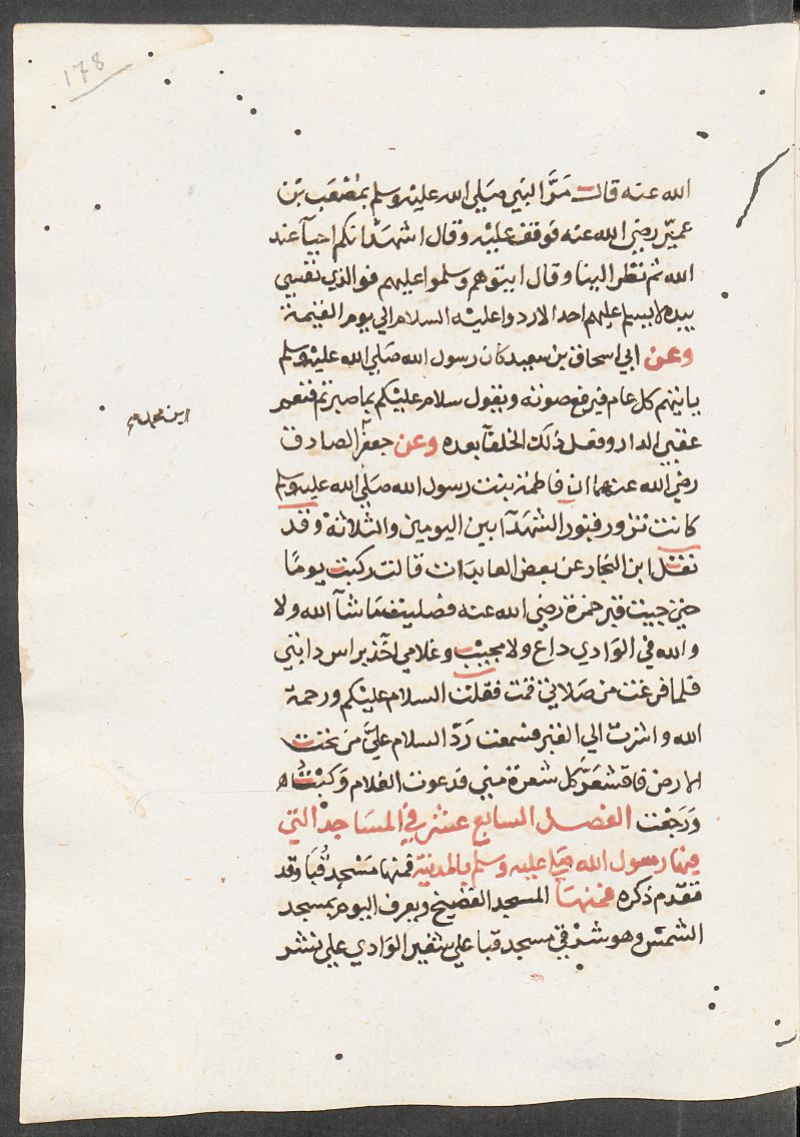 ١٧٨
الله عنه قالت مَرَّ النبي صَلي الله عليْه وسلم بمصْعَب بْن
عميّر رضي الله عنه فوقف عليْه وقال اشهَدُ انكم احيآ عند
الله ثم نظر الينا وقال ايتوهم وسلموا عليهم فوالذي نفسي
بيده لا يسلم عليهم احد الا ردوا عليْه السلام الي يوم القيمة
وعن ابي اسحاق بن سعيد كان رسول الله صَلي الله عليْه وسلم
ياتيهم كل عام فيرفع صوته ويقول سلام عليْكم بما صبرتم فنعم
عقبي الدار وفعل ذلك الخلفآ بعده وعن جعفر الصادق
ابن محمد
رضي الله عنهما ان فاطمة بنت رسول الله صَلي الله عليْه وسلم
كانت تزور قبور الشهدَآ بين اليومين والثلاثة وقد
نقل ابن النجار عن بعض العابدات قالت ركبت يومًا
حتي جيت قبر حمزة رضي الله عنه فصليت مَا شآ الله ولا
والله في الوَادي داع ولا مجيْب وغلامي آخذ براس دابتي
فلما فرغت من صَلاتي قمت فقلت السلام عليْكم ورحمة
الله واشرت الي القبر فسمعت رَدّ السلام عليَّ من تحت
الارض فاقشعَرّ كل شعرة مني فدعوت الغلام وَركبْتُ
وَرَجَعْت الفصل السابع عشر في المسَاجد التي
فيها رسول الله صلي عليه وسلم بالمدينة فمنها مَسْجد قُبَا وقد
تقدم ذكره فمنهَا المسجد الفضيخ ويعرف اليوم بمسجد
الشمسْ وهو شرْقي مسجد قبا علي شفير الوَادي علي نشز